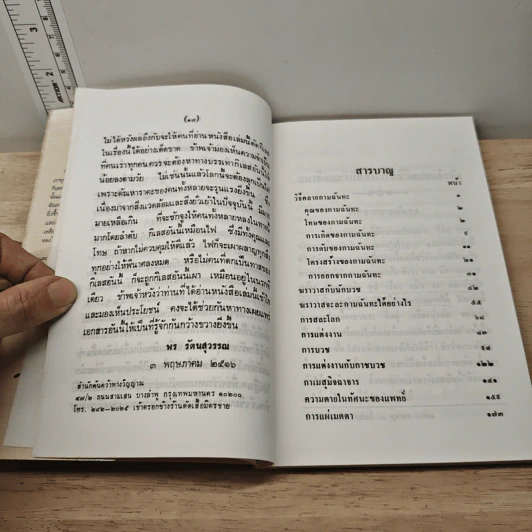 (๑๙)
ไม่ได้หวังผลถึงกับจะให้คนที่อ่านหนังสือเล่มนี้ตัดกิเลส
ในเรื่องนี้ได้อย่างเด็ดขาด ข้าพเจ้ามองเห็นความจำเป็น
ที่คนเราทุกคนควรจะต้องหาทางบรรเทากิเลสอันนี้ให้
น้อยลงตามวัย ไม่เช่นนั้นแล้วโลกนี้จะต้องลุกเป็นไฟ
เพราะตัณหาราคะของคนทั้งหลายจะรุนแรงยิ่งขึ้น
เนื่องมาจากสิ่งแวดล้อมและสิ่งยั่วเย้าในปัจจุบันนี้ มีมาก
มายเหลือเกิน ที่จะชักจูงให้คนทั้งหลายหลงในทางนี้
มากโดยลำดับ กิเลสอันนี้เหมือนไฟ ซึ่งมีทั้งคุณและ
โทษ ถ้าหากไม่ควบคุมให้ดีแล้ว ไฟก็จะเผาผลาญทุกสิ่ง
ทุกอย่างให้พินาศลงหมด หรือไม่คนที่ตกเป็นทาสของ
กิเลสอันนี้ ก็จะถูกกิเลสอันนี้เผา เหมือนอยู่ในนรกที
เดียว ข้าพเจ้าหวังว่าท่านที่ได้อ่านหนังสือเล่มนี้เข้าใจ
และมองเห็นประโยชน์ คงจะได้ช่วยกันหาทางเผยแพร่
เอกสารอันนี้ให้เป็นที่รู้จักกันกว้างขวางยิ่งขึ้น
พร รัตนสุวรรณ
๓ พฤษภาคม ๒๕๑๖
สำนักค้นคว้าทางวิญญาณ
๔๗/๒ ถนนสามเสน บางลำพู กรุงเทพมหานคร ๑๐๒๐๐
โทร. ๒๘๒-๒๐๒๕ เข้าตรอกข้างร้านตัดเสื้อมิตรชาย
สารบาญ
หน้า
วิธีคลายกามฉันทะ ๑
คุณของกามฉันทะ ๒
โทษของกามฉันทะ
การเกิดของกามฉันทะ ๙
การดับของกามฉันทะ ๑๑
โครงสร้างของกามฉันทะ ๒๑
การออกจากกามฉันทะ ๓๑
ฆราวาสกับนักบวช ๔๒
ฆราวาสจะละกามฉันทะได้อย่างไร ๕๕
การสละโลก ๖๘
การแต่งงาน ๘๓
การบวช ๙๘
การแต่งงานกับการบวช ๑๒๒
กาเมสุมิจฉาจาร ๑๔๑
ความตายในทัศนะของแพทย์ ๑๕๙
การแผ่เมตตา ๑๗๓